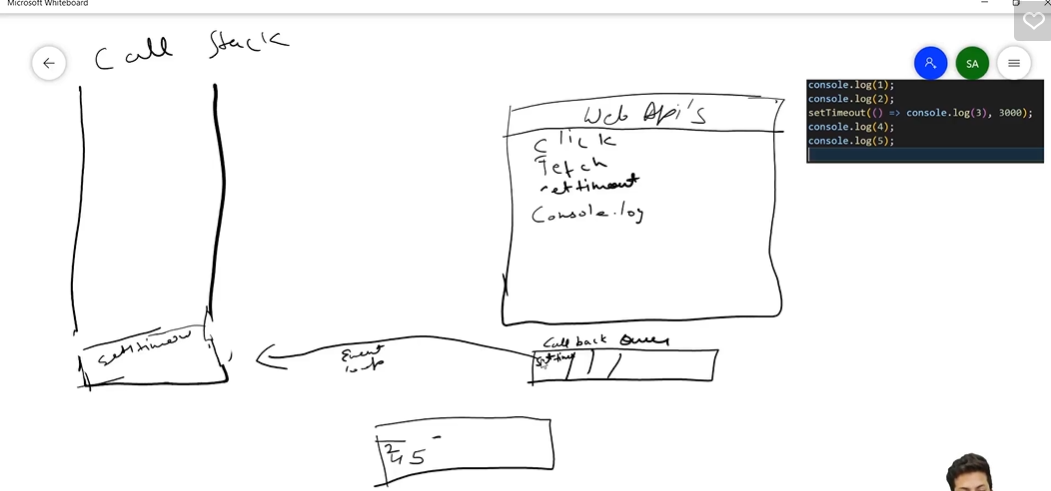 Microsoft Whiteboard
Call Stack
SA
console.log(1);
console.log(2);
setTimeout(() => console.log(3), 3000);
console.log(4);
console.log(5);
Web Api's
Click
Fetch
settimeout
Console.log
Call back
Event
loop
2
45